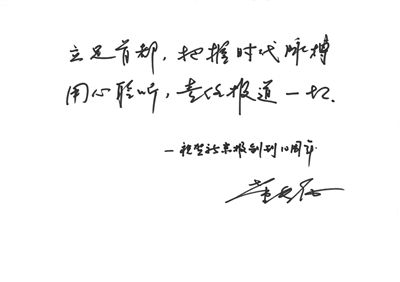 立足首都，把握时代脉搏
用心聆听，责任报道一切.
—祝贺新京报创刊10周年